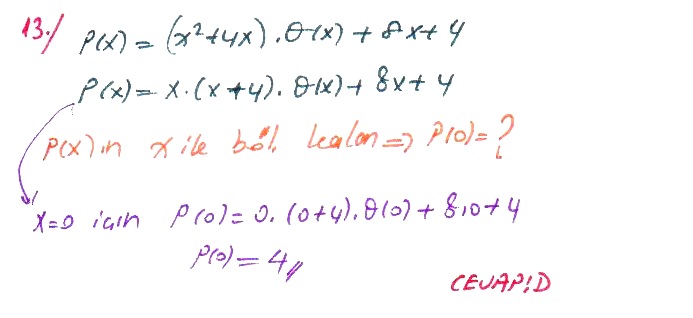 13./ P(x) = (x²+4x).θ(x) + 8x + 4
P(x) = x.(x+4).θ(x) + 8x + 4
P(x)in x ile böl. kalan ⇒ P(0) = ?
x=0 için P(0) = 0.(0+4).θ(0) + 8.0 + 4
P(0) = 4//
CEVAP!D